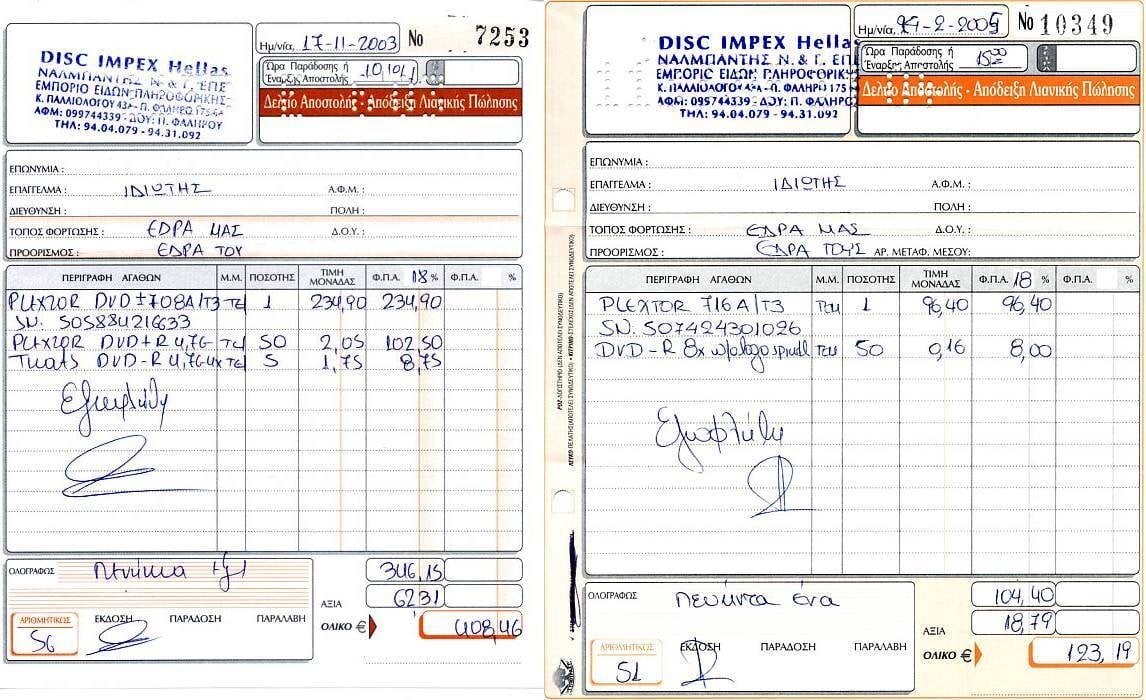 Ημ/νία, 17-11-2003 Νο 7253
DISC IMPEX Hellas
ΝΑΛΜΠΑΝΤΗΣ Ν. & Γ. ΕΠΕ
ΕΜΠΟΡΙΟ ΕΙΔΩΝ ΠΛΗΡΟΦΟΡΙΚΗΣ
Κ. ΠΑΛΑΙΟΛΟΓΟΥ 43Α - Π. ΦΑΛΗΡΟ 175
ΑΦΜ: 099744339 - ΔΟΥ: Π. ΦΑΛΗΡΟΥ
ΤΗΛ: 94.04.079 - 94.31.092
Ώρα Παράδοσης ή
Έναρξης Αποστολής
Δελτίο Αποστολής - Απόδειξη Λιανικής Πώλησης
ΕΠΩΝΥΜΙΑ :
ΕΠΑΓΓΕΛΜΑ : ΙΔΙΩΤΗΣ Α.Φ.Μ. :
ΔΙΕΥΘΥΝΣΗ : ΠΟΛΗ :
ΤΟΠΟΣ ΦΟΡΤΩΣΗΣ : ΕΔΡΑ ΜΑΣ Δ.Ο.Υ. :
ΠΡΟΟΡΙΣΜΟΣ : ΕΔΡΑ ΤΟΥ
ΠΕΡΙΓΡΑΦΗ ΑΓΑΘΩΝ Μ.Μ. ΠΟΣΟΤΗΣ ΤΙΜΗ ΜΟΝΑΔΑΣ Φ.Π.Α. 18 % Φ.Π.Α. %
PLEXTOR DVD±708A/T3 Τεμ 1 234,90 234,90
SN: 505884216633
PLEXTOR DVD+R 4,7G Τεμ 50 2,05 102,50
DVD-R 4,7G 4x Τεμ 5 1,75 8,75
Εξωφλήθη
ΟΛΟΓΡΑΦΩΣ Πενήντα έξι
346,15
ΑΞΙΑ 62,31
ΟΛΙΚΟ € 408,46
ΑΡΙΘΜΗΤΙΚΩΣ ΕΚΔΟΣΗ ΠΑΡΑΔΟΣΗ ΠΑΡΑΛΑΒΗ
56
Ημ/νία, -2-2005 Νο 10349
DISC IMPEX Hellas
ΝΑΛΜΠΑΝΤΗΣ Ν. & Γ. ΕΠΕ
ΕΜΠΟΡΙΟ ΕΙΔΩΝ ΠΛΗΡΟΦΟΡΙΚΗ
Κ. ΠΑΛΑΙΟΛΟΓΟΥ 43Α - Π. ΦΑΛΗΡΟ 175
ΑΦΜ: 099744339 - ΔΟΥ: Π. ΦΑΛΗΡΟ
ΤΗΛ: 94.04.079 - 94.31.092
Ώρα Παράδοσης ή
Έναρξης Αποστολής 15:00
Δελτίο Αποστολής - Απόδειξη Λιανικής Πώλησης
ΕΠΩΝΥΜΙΑ :
ΕΠΑΓΓΕΛΜΑ : ΙΔΙΩΤΗΣ Α.Φ.Μ. :
ΔΙΕΥΘΥΝΣΗ : ΠΟΛΗ :
ΤΟΠΟΣ ΦΟΡΤΩΣΗΣ : ΕΔΡΑ ΜΑΣ Δ.Ο.Υ. :
ΠΡΟΟΡΙΣΜΟΣ : ΕΔΡΑ ΤΟΥΣ ΑΡ. ΜΕΤΑΦ. ΜΕΣΟΥ:
ΠΕΡΙΓΡΑΦΗ ΑΓΑΘΩΝ Μ.Μ. ΠΟΣΟΤΗΣ ΤΙΜΗ ΜΟΝΑΔΑΣ Φ.Π.Α. 18 % Φ.Π.Α. %
PLEXTOR 716A/T3 Τεμ 1 96,40 96,40
SN. 507424301026
DVD-R 8x w/o logo spindl Τεμ 50 0,16 8,00
Εξωφλήθη
ΟΛΟΓΡΑΦΩΣ Πενήντα ένα
104,40
ΑΞΙΑ 18,79
ΟΛΙΚΟ € 123,19
ΑΡΙΘΜΗΤΙΚΩΣ ΕΚΔΟΣΗ ΠΑΡΑΔΟΣΗ ΠΑΡΑΛΑΒΗ
51